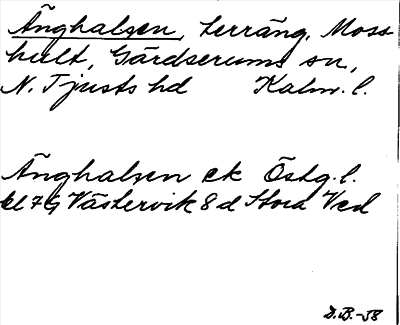 Änghalsen, terräng, Moss-
hult, Gärdserums sn,
N. Tjusts hd Kalm. l.
Änghalsen ek Östg. l.
bl 7 G Västervik 8 d Stora Ved
D.B.-58